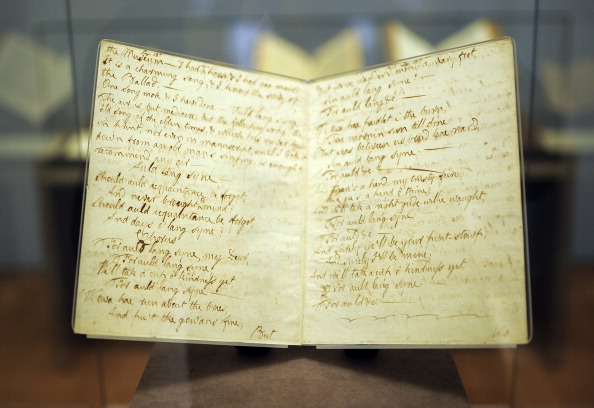 the Museum — I had a horse & I had nae mair
It is a charming song, & I know the story of
the Ballad. —
One song more & I have done. — Auld lang syne —
The air is but mediocre; but the following song, the
old song of the olden times, & which has never been
in print, nor even in manuscript, until I took it
down from an old man's singing; is enough to
recommend any air —
Auld lang syne
Should auld acquaintance be forgot,
And never brought to mind?
Should auld acquaintance be forgot,
And days o' lang syne!
Chorus
For auld lang syne, my Dear,
For auld lang syne,
We'll tak a cup o' kindness yet
For auld lang syne —
We twa hae run about the braes,
And pu't the gowans fine;
But
But we've wander'd mony a weary foot
Sin auld lang syne —
For auld lang &c
We twa hae paidl't i' the burn,
Frae mornin sun till dine:
But seas between us braid hae roar'd,
Sin auld lang syne —
For auld &c —
And there's a hand, my trusty fiere,
And gie's a hand o' thine;
And we'll tak a right gudewillie waught,
For auld lang syne
For auld &c —
And surely, ye'll be your pint stowp,
And surely I'll be mine;
And we'll tak a cup o' kindness yet
For auld lang syne —
For auld &c —